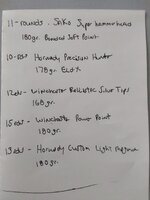 11-rounds. Sako Super hammerhead
180gr. Bonded Soft Point
10-rds Hornady Precision Hunter
178gr. ELD-X
12rds- Winchester Ballistic Silver Tips
168gr.
15rds- Winchester Power Point
180gr.
13rds- Hornady Custom Light Magnum
180gr.